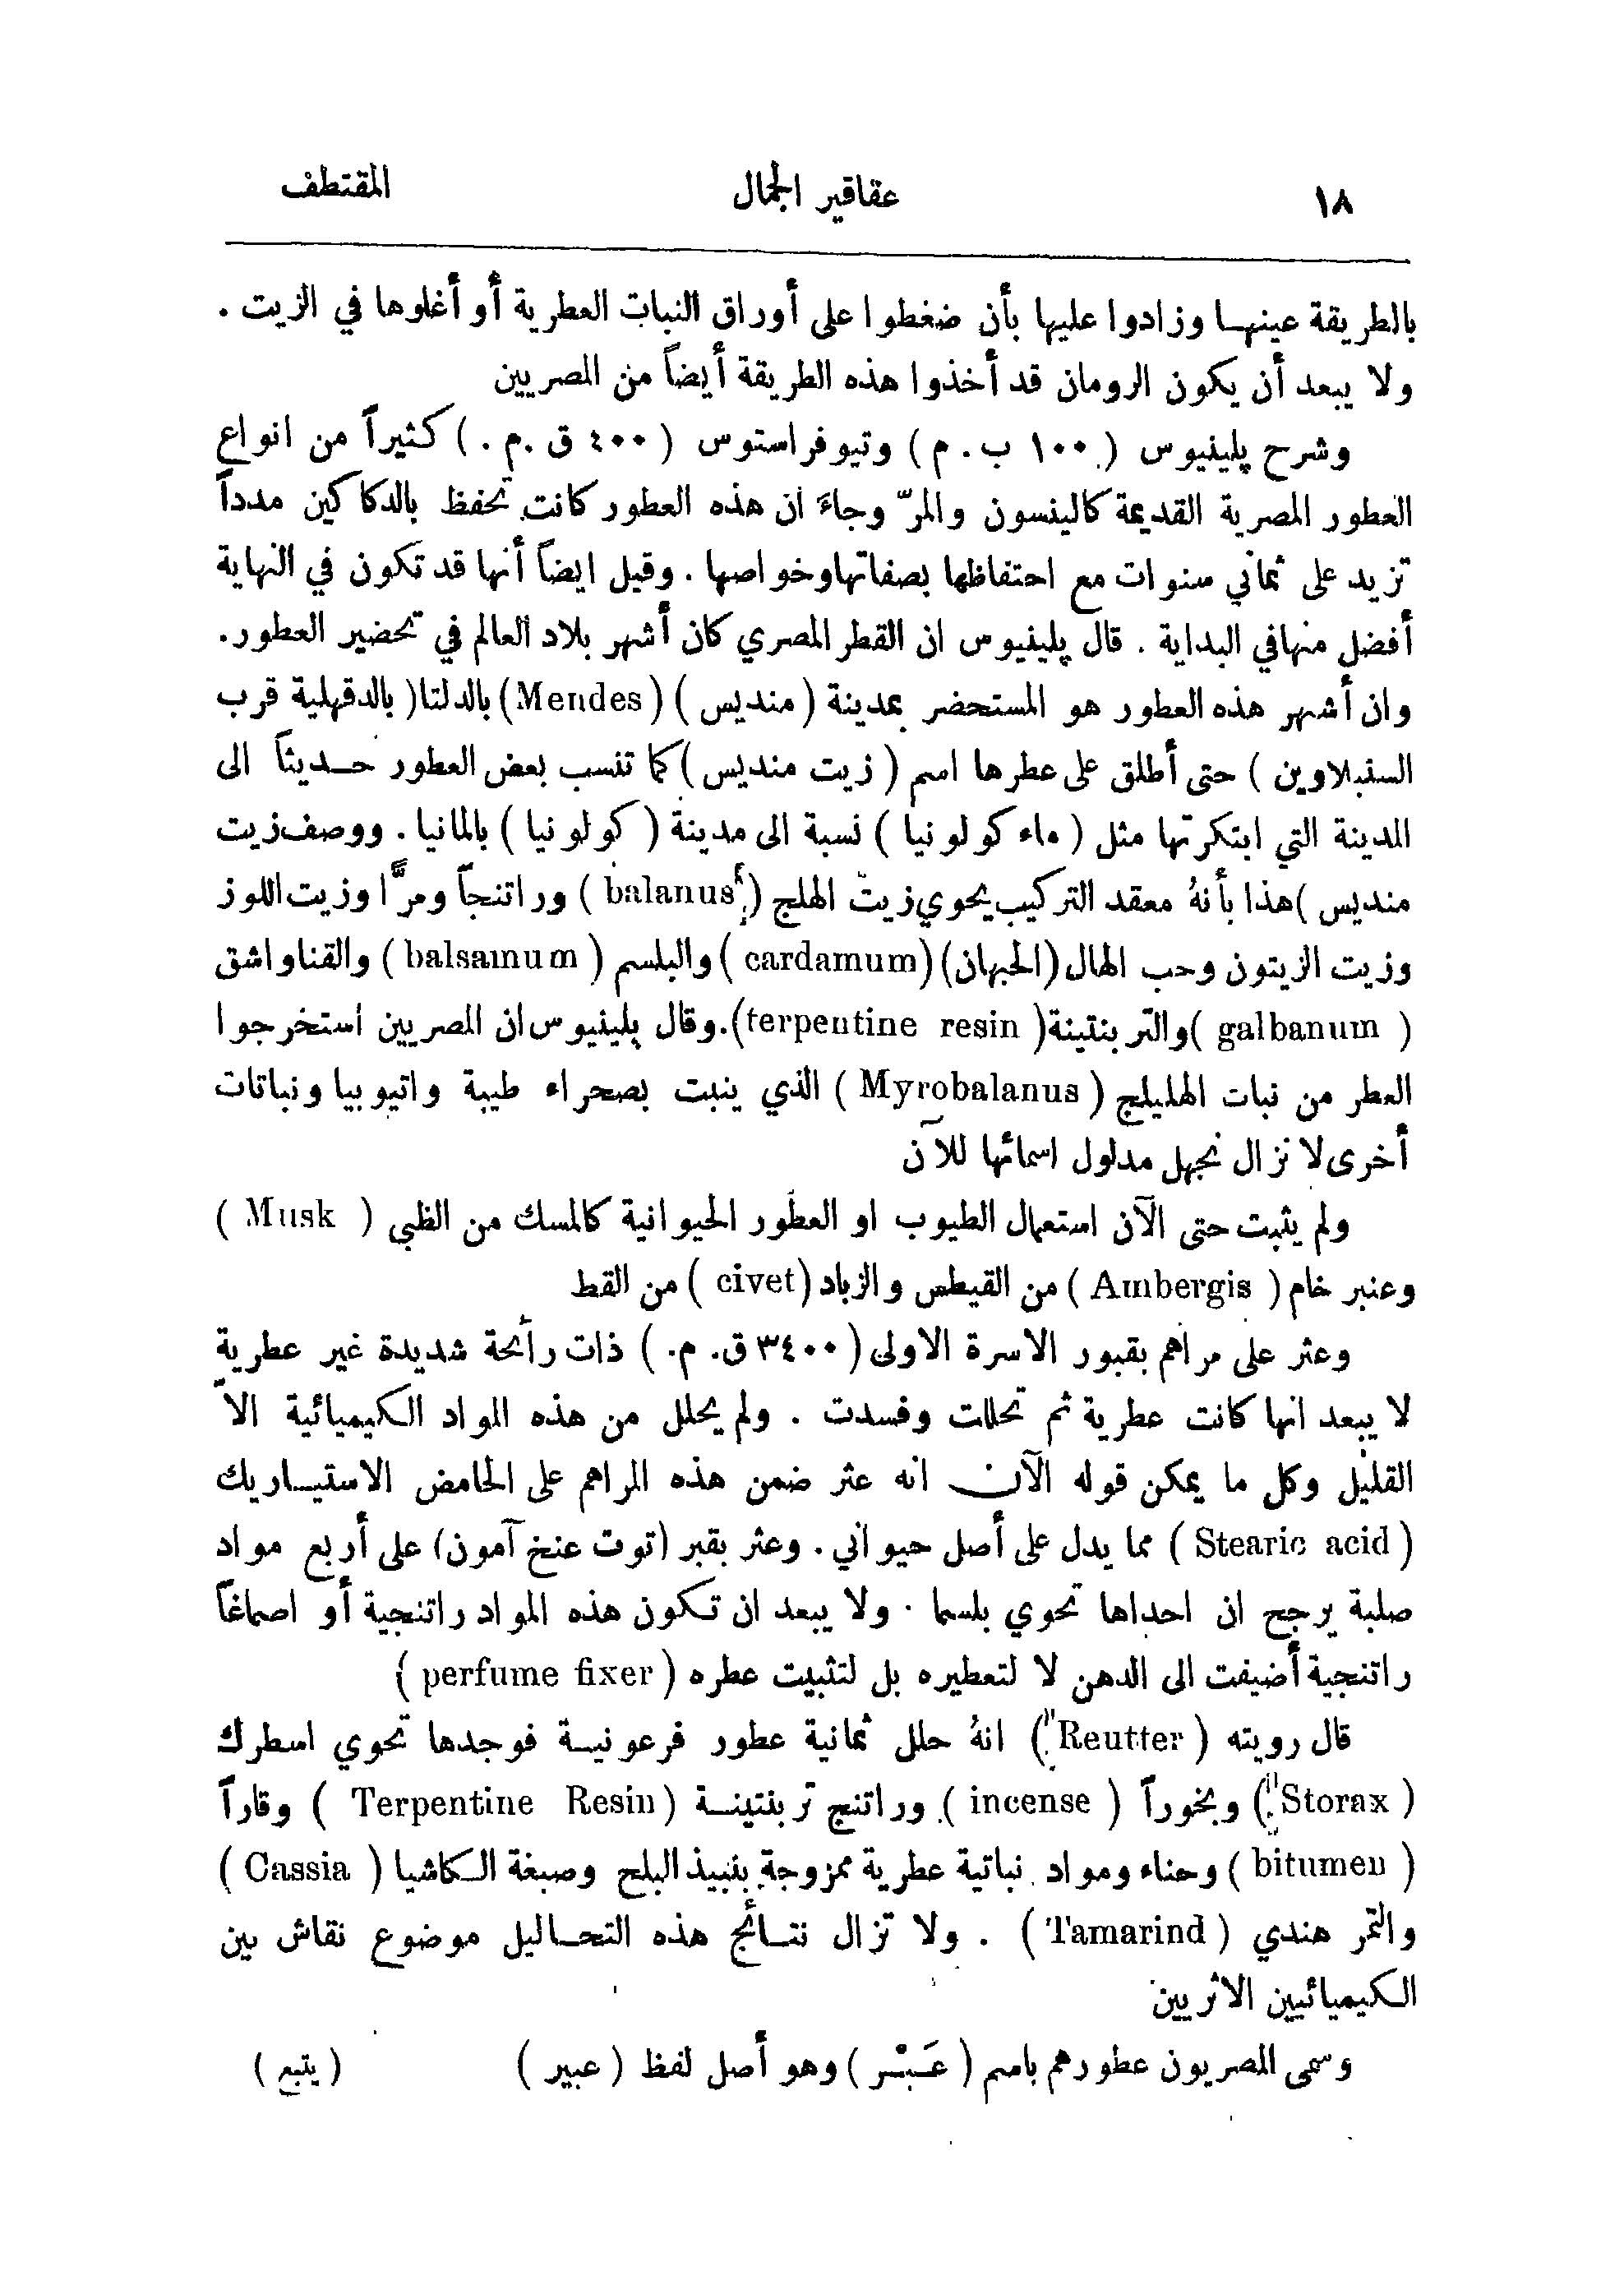 ١٨ عقاقير الجمال المقتطف
بالطريقة عينها وزادوا عليها بأن ضغطوا على أوراق النبات العطرية أو أغلوها في الزيت .
ولا يبعد أن يكون الرومان قد أخذوا هذه الطريقة أيضاً من المصريين
وشرح پلينيوس ( ١٠٠ ب . م ) وتيوفراستوس ( ٤٠٠ ق .م . ) كثيراً من انواع
العطور المصرية القديمة كالينسون والمرّ وجاءَ ان هذه العطور كانت تحفظ بالدكاكين مدداً
تزيد على ثماني سنوات مع احتفاظها بصفاتها وخواصها . وقيل ايضاً أنها قد تكون في النهاية
أفضل منها في البداية . قال پلينيوس ان القطر المصري كان أشهر بلاد العالم في تحضير العطور .
وان أشهر هذه العطور هو المستحضر بمدينة ( منديس ) ( Mendes ) بالدلتا ( بالدقهلية قرب
السنبلاوين ) حتى أطلق على عطرها اسم ( زيت منديس ) كما تنسب بعض العطور حديثاً الى
المدينة التي ابتكرتها مثل ( ماء كولونيا ) نسبة الى مدينة ( كولونيا ) بالمانيا . ووصف زيت
منديس ) هذا بأنهُ معقد التركيب يحوي زيت الهلج ( balanus ) وراتنجاً ومرًّا وزيت اللوز
وزيت الزيتون وحب الهال ( الحبهان ) ( cardamum ) والبلسم ( balsamum ) والقناواشق
( galbanum ) والتربنتينة ( terpentine resin ) . وقال پلينيوس ان المصريين استخرجوا
العطر من نبات الهليلج ( Myrobalanus ) الذي ينبت بصحراء طيبة واتيوبيا ونباتات
أخرى لا نزال نجهل مدلول اسمائها للآن
ولم يثبت حتى الآن استعمال الطيوب او العطور الحيوانية كالمسك من الظبي ( Musk )
وعنبر خام ( Ambergis ) من القيطس والزباد ( civet ) من القط
وعثر على مراهم بقبور الاسرة الاولى ( ٣٤٠٠ ق. م. ) ذات رائحة شديدة غير عطرية
لا يبعد انها كانت عطرية ثم تحللت وفسدت . ولم يحلل من هذه المواد الكيميائية الاّ
القليل وكل ما يمكن قوله الآن انه عثر ضمن هذه المراهم على الحامض الاستياريك
( Stearic acid ) مما يدل على أصل حيواني . وعثر بقبر ( توت عنخ آمون ) على أربع مواد
صلبة يرجح ان احداها تحوي بلسما . ولا يبعد ان تكون هذه المواد راتنجية أو اصماغاً
راتنجية أضيفت الى الدهن لا لتعطيره بل لتثبيت عطره ( perfume fixer )
قال رويته ( Reutter ) انهُ حلل ثمانية عطور فرعونية فوجدها تحوي اسطرك
( Storax ) وبخوراً ( incense ) وراتنج تربنتينة ( Terpentine Resin ) وقاراً
( bitumen ) وحناء ومواد نباتية عطرية ممزوجة بنبيذ البلح وصبغة الكاشيا ( Cassia )
والتمر هندي ( Tamarind ) . ولا تزال نتائج هذه التحاليل موضوع نقاش بين
الكيميائيين الاثريين
وسمى المصريون عطورهم باسم ( عَبْر ) وهو أصل لفظ ( عبير ) ( يتبع )